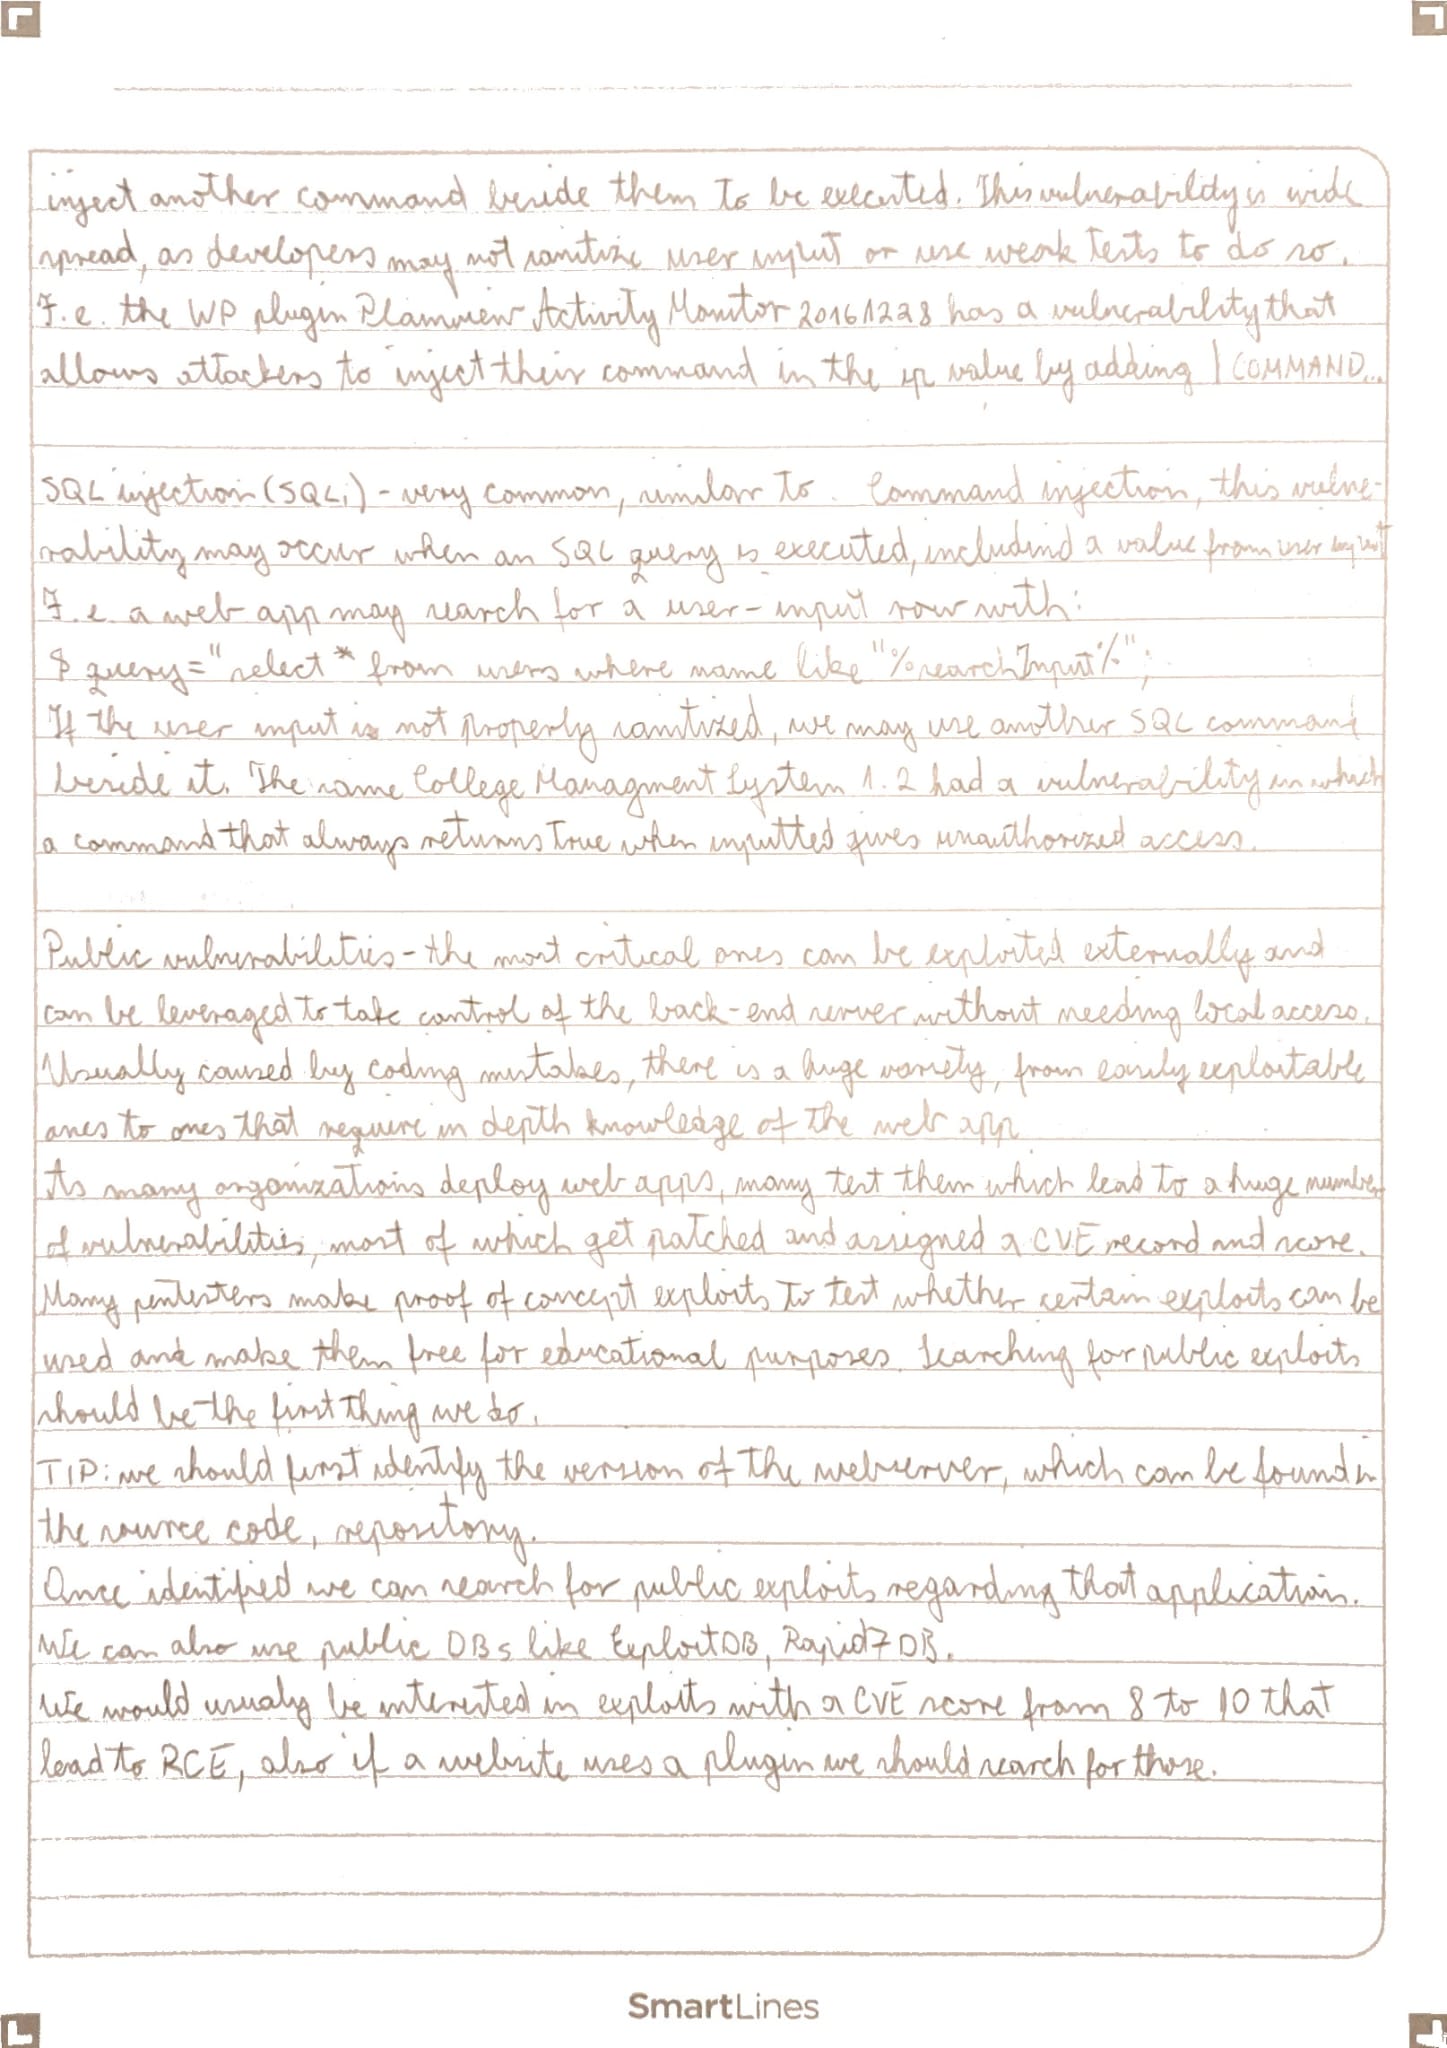 inject another command beside them to be executed. This vulnerability is wide
spread, as developers may not sanitize user input or use weak tests to do so.
F.e. the WP plugin Plainview Activity Monitor 20161228 has a vulnerability that
allows attackers to inject their command in the ip value by adding | COMMAND...
SQL injection (SQLi) - very common, similar to Command injection, this vulne-
rability may occur when an SQL query is executed, includind a value from user input
F.e. a web app may search for a user-input row with:
$ query = "select * from users where name like "%searchInput%";
If the user input is not properly sanitized, we may use another SQL command
beside it. The same College Managment System 1.2 had a vulnerability in which
a command that always returns true when inputted gives unauthorized access.
Public vulnerabilities - the most critical ones can be exploited externally and
can be leveraged to take control of the back-end server without needing local access.
Usually caused by coding mistakes, there is a huge variety, from easily exploitable
ones to ones that require in depth knowledge of the web app
As many organizations deploy web apps, many test them which lead to a huge number
of vulnerabilities, most of which get patched and assigned a CVE record and score.
Many pentesters make proof of concept exploits to test whether certain exploits can be
used and make them free for educational purposes. Searching for public exploits
should be the first thing we do.
TIP: we should first identify the version of the webserver, which can be found in
the source code, repository.
Once identified we can search for public exploits regarding that application.
We can also use public DBs like ExploitDB, Rapid7 DB.
We would usualy be interested in exploits with a CVE score from 8 to 10 that
lead to RCE, also if a website uses a plugin we should search for those.
SmartLines